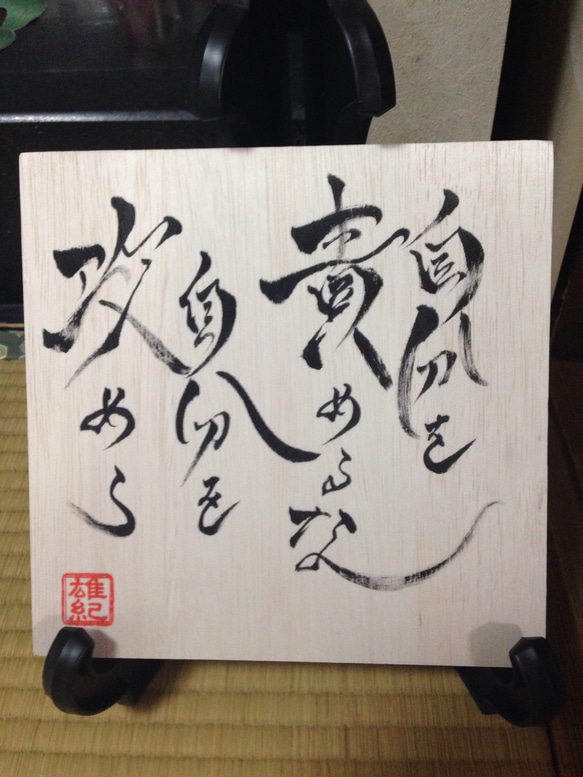 自分を
責めるな
自分を
攻める
雄紀